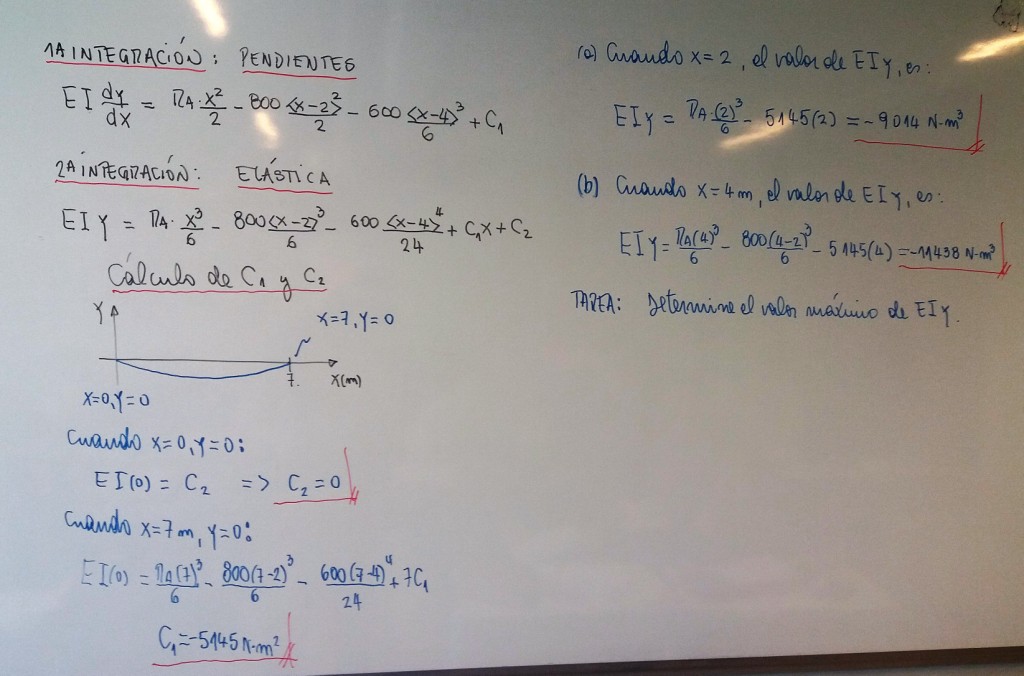 1A INTEGRACIÓN: PENDIENTES
EI dy/dx = RA·x²/2 - 800<x-2>²/2 - 600<x-4>³/6 + C₁
2A INTEGRACIÓN: ELÁSTICA
EIY = RA·x³/6 - 800<x-2>³/6 - 600<x-4>⁴/24 + C₁x + C₂
Cálculo de C₁ y C₂
Y
X=7, Y=0
7.
X(m)
X=0, Y=0
Cuando X=0, Y=0:
EI(0) = C₂ => C₂=0
Cuando X=7m, Y=0:
EI(0) = RA(7)³/6 - 800(7-2)³/6 - 600(7-4)⁴/24 + 7C₁
C₁=-5145 N·m²
(a) Cuando X=2, el valor de EIY, es:
EIY = RA·(2)³/6 - 5145(2) = -9014 N·m³
(b) Cuando X=4m, el valor de EIY, es:
EIY = RA(4)³/6 - 800(4-2)³/6 - 5145(4) = -11438 N·m³
TAREA: Determine el valor máximo de EIY.